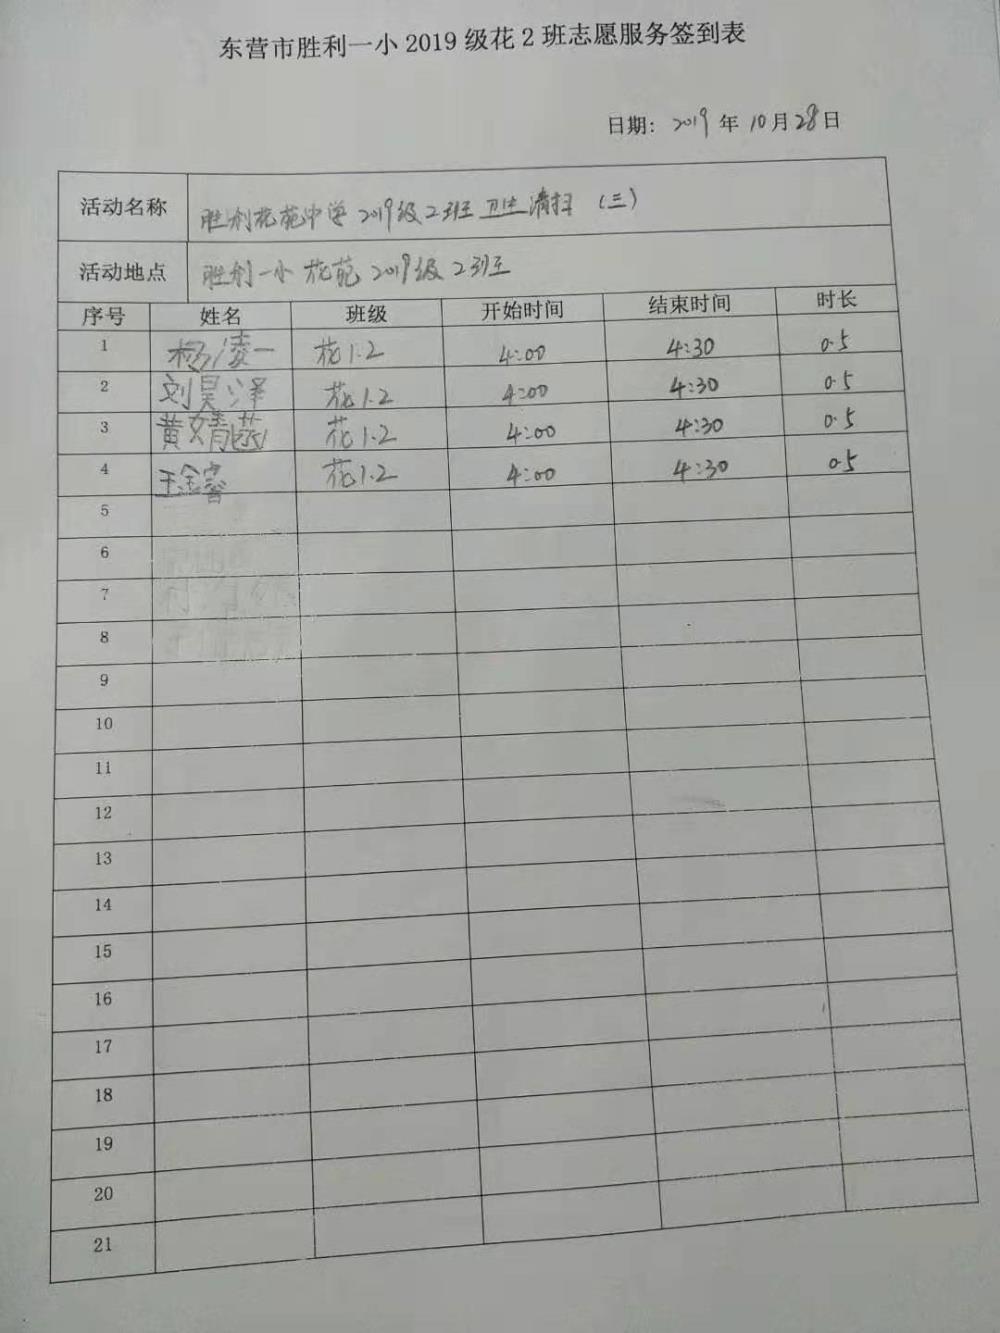 东营市胜利一小 2019 级花 2 班志愿服务签到表
日期: 2019 年 10 月 28 日
活动名称 胜利花苑中学 2019级2班 卫生清扫 (三)
活动地点 胜利一小 花苑 2019级 2班
序号 姓名 班级 开始时间 结束时间 时长
1 杨凌一 花1.2 4:00 4:30 0.5
2 刘昊泽 花1.2 4:00 4:30 0.5
3 黄婧 花1.2 4:00 4:30 0.5
4 王金睿 花1.2 4:00 4:30 0.5
5
6
7
8
9
10
11
12
13
14
15
16
17
18
19
20
21